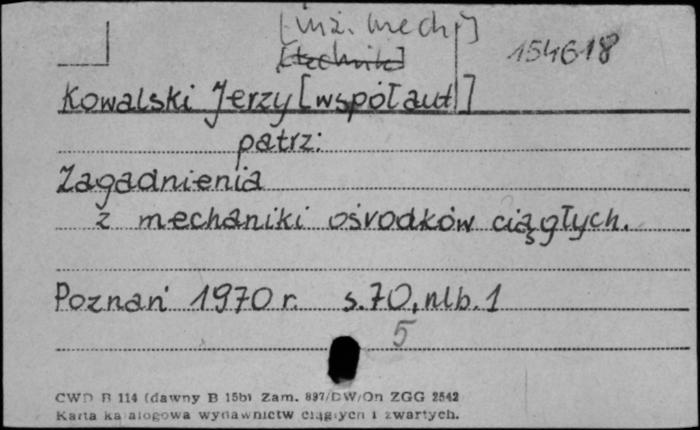 [inż. mech.]
[technik]
154618
Kowalski Jerzy [współaut]
patrz:
Zagadnienia
z mechaniki ośrodków ciągłych.
Poznań 1970 r. s. 70, nlb. 1
5
CWD B 114 (dawny B 15b) Zam. 897/DW/On ZGG 2542
Karta katalogowa wydawnictw ciągłych i zwartych.